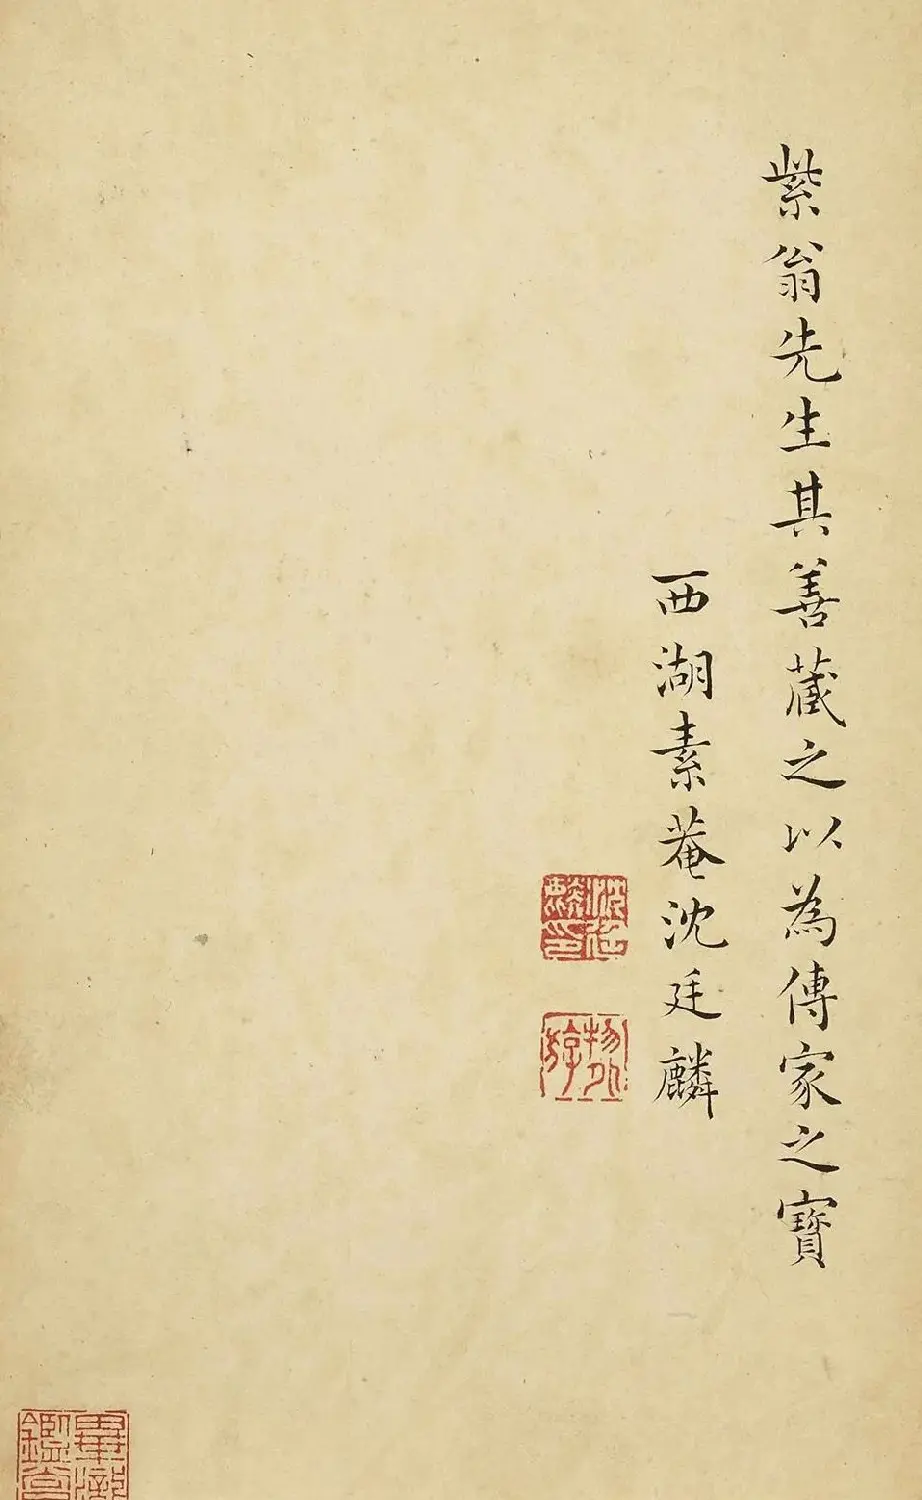 紫翁先生其善藏之以為傳家之寶
西湖素菴沈廷麟